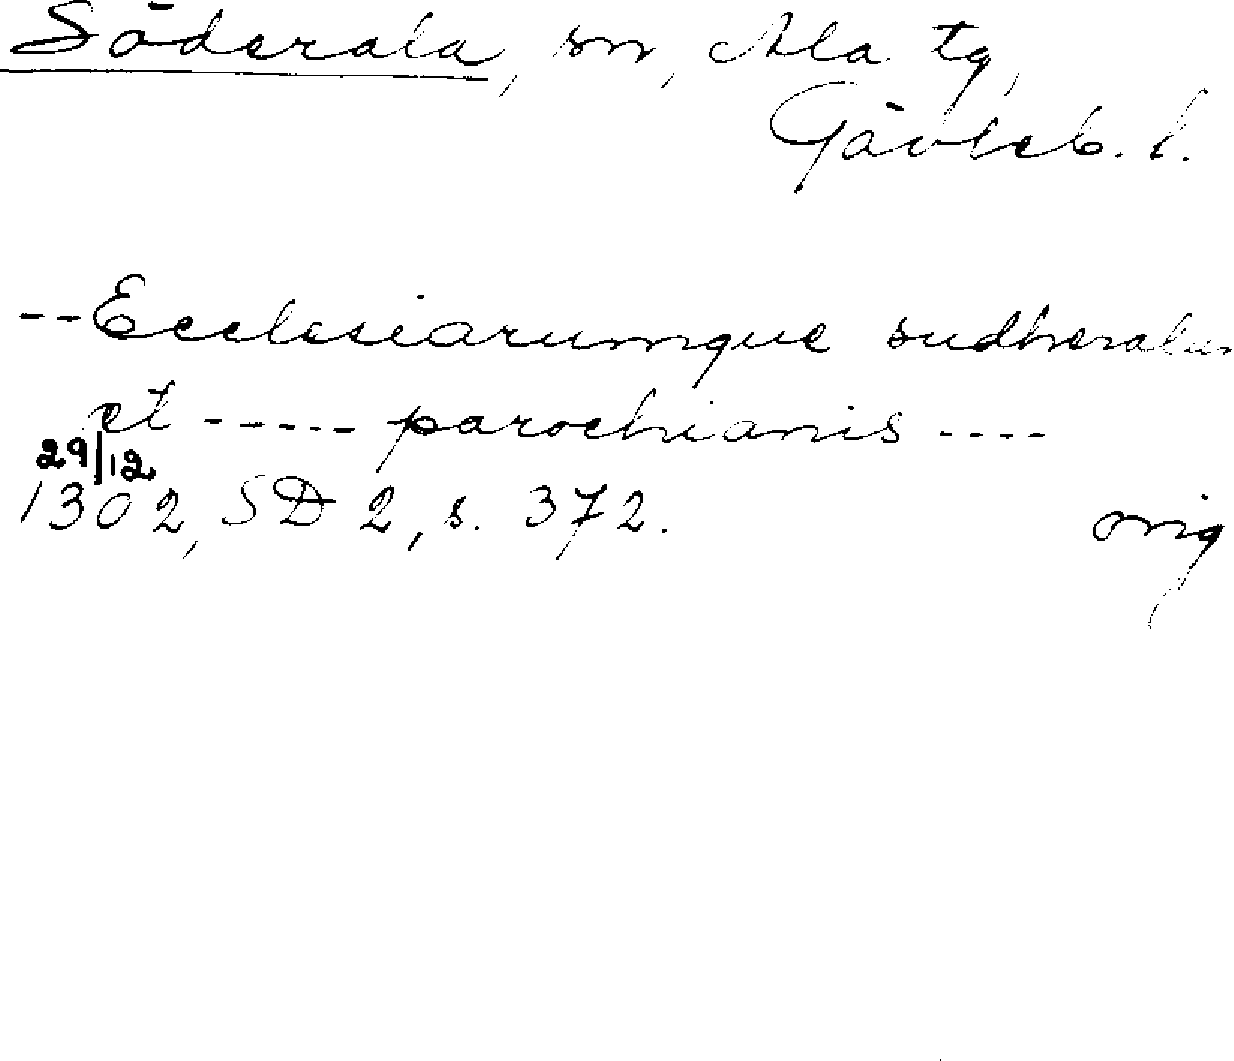 Söderala, sn, Ala tg,
Gävleb. l.
--Ecclesiarumque sudheralum
et ----- parochianis ----
29/12
1302, SD 2, s. 372. orig